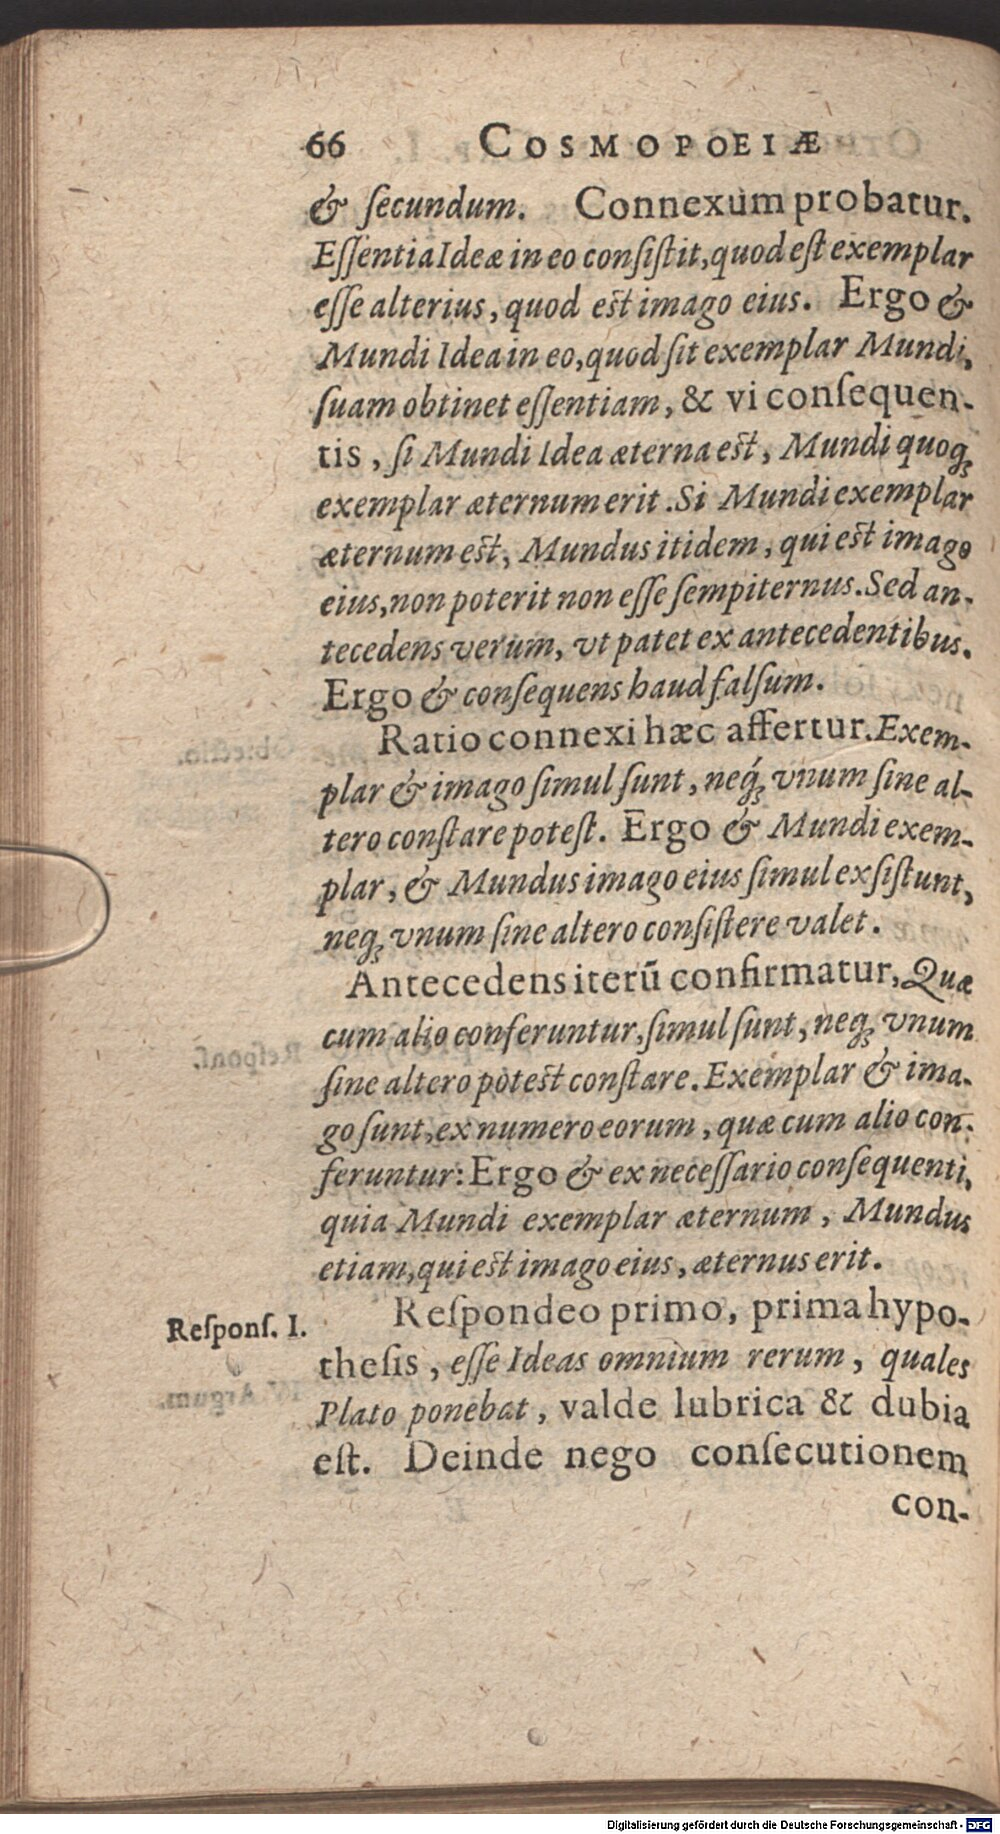 66 COSMOPOEIÆ
& ſecundum. Connexum probatur.
Eſſentia Ideæ in eo conſiſtit, quod eſt exemplar
eſſe alterius, quod est imago eius. Ergo &
Mundi Idea in eo, quod ſit exemplar Mundi,
ſuam obtinet eſſentiam, & vi conſequen-
tis, ſi Mundi Idea æterna est, Mundi quoqꝫ
exemplar æternum erit. Si Mundi exemplar
æternum est, Mundus itidem, qui est imago
eius, non poterit non eſſe ſempiternus. Sed an-
tecedens verum, vt patet ex antecedentibus.
Ergo & conſequens haud falſum.
Ratio connexi hæc affertur. Exem-
plar & imago ſimul ſunt, neqꝫ́ vnum ſine al-
tero conſtare poteſt. Ergo & Mundi exem-
plar, & Mundus imago eius ſimul exſiſtunt,
neqꝫ vnum ſine altero conſiſtere valet.
Antecedens iterū confirmatur, Quæ
cum alio conferuntur, ſimul ſunt, neqꝫ vnum
ſine altero potest conſtare. Exemplar & ima-
go ſunt, ex numero eorum, quæ cum alio con-
feruntur: Ergo & ex neceſſario conſequenti,
quia Mundi exemplar æternum, Mundus
etiam, qui est imago eius, æternus erit.
Reſponſ. I.
Reſpondeo primo, prima hypo-
theſis, eſſe Ideas omnium rerum, quales
Plato ponebat, valde lubrica & dubia
eſt. Deinde nego conſecutionem
con-
Digitalisierung gefördert durch die Deutsche Forschungsgemeinschaft - DFG